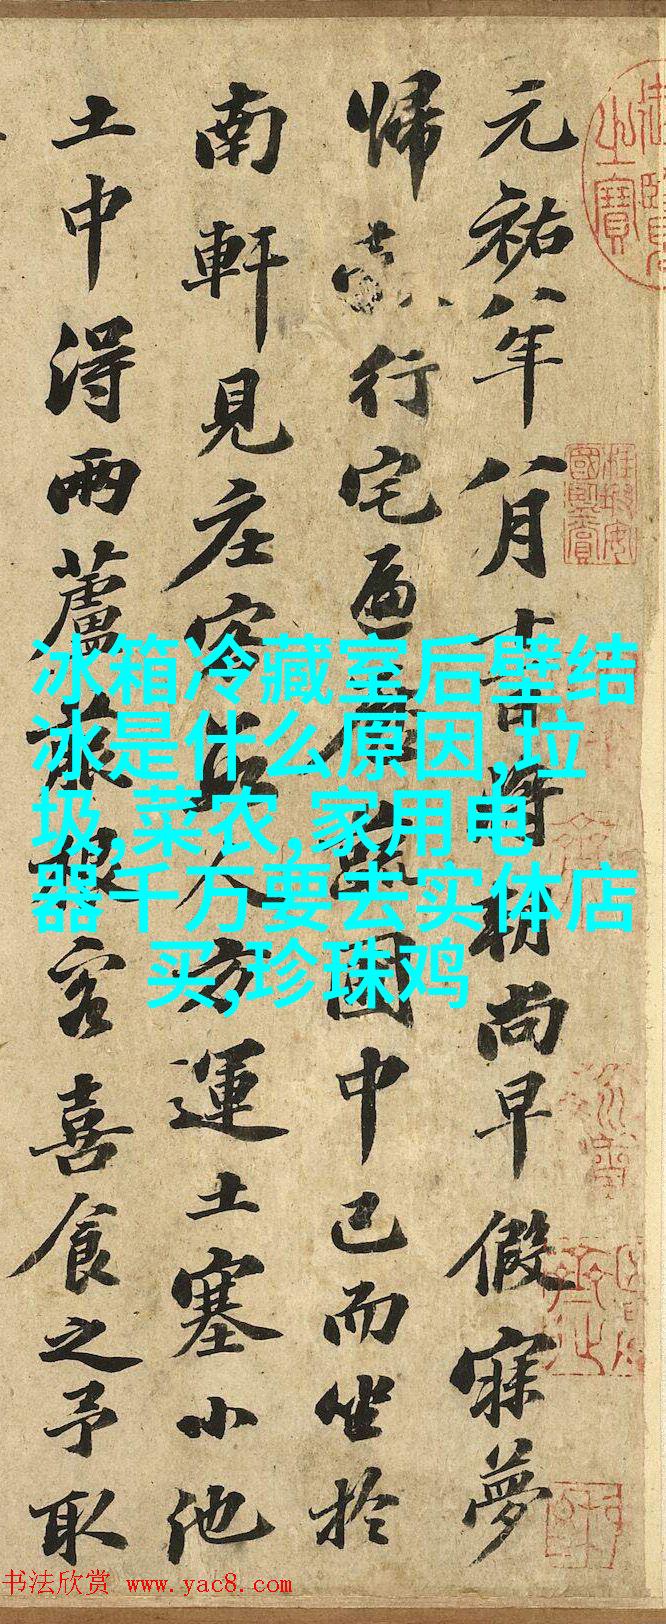 元祐八年八月十一日將朝尚早假寐夢
歸行宅遍蔬園中已而坐於
南軒見庄客數人方運土塞小池
土中得兩蘆菔根客喜食之予取
冰箱冷藏室后壁结
冰是什么原因,垃
圾,菜农,家用电
器千万要去实体店
买,珍珠鸡
书法欣赏 www.yac8.com